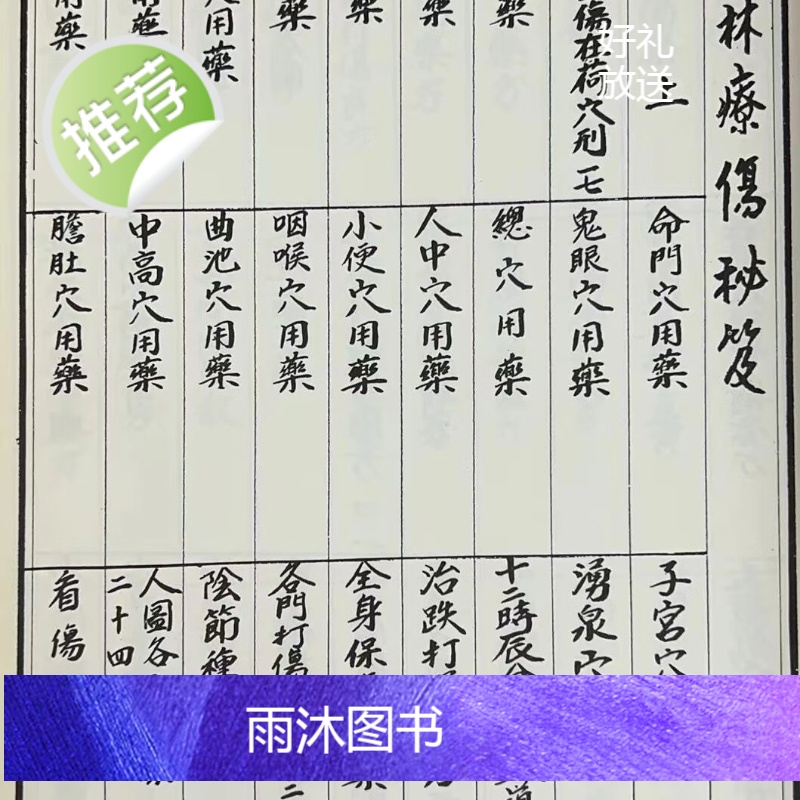 林療傷秘笈
二
命門穴用藥
子宮穴
傷在荷穴刑一七
鬼眼穴用藥
湧泉穴
藥
總穴用藥
十二時辰
藥
人中穴用藥
治跌打
藥
小便穴用藥
全身保
藥
咽喉穴用藥
各門打傷
二
穴用藥
曲池穴用藥
陰節種
中高穴用藥
人圖各
二十四
用藥
膽肚穴用藥
看傷
推荐
好礼
放送
雨沐图书